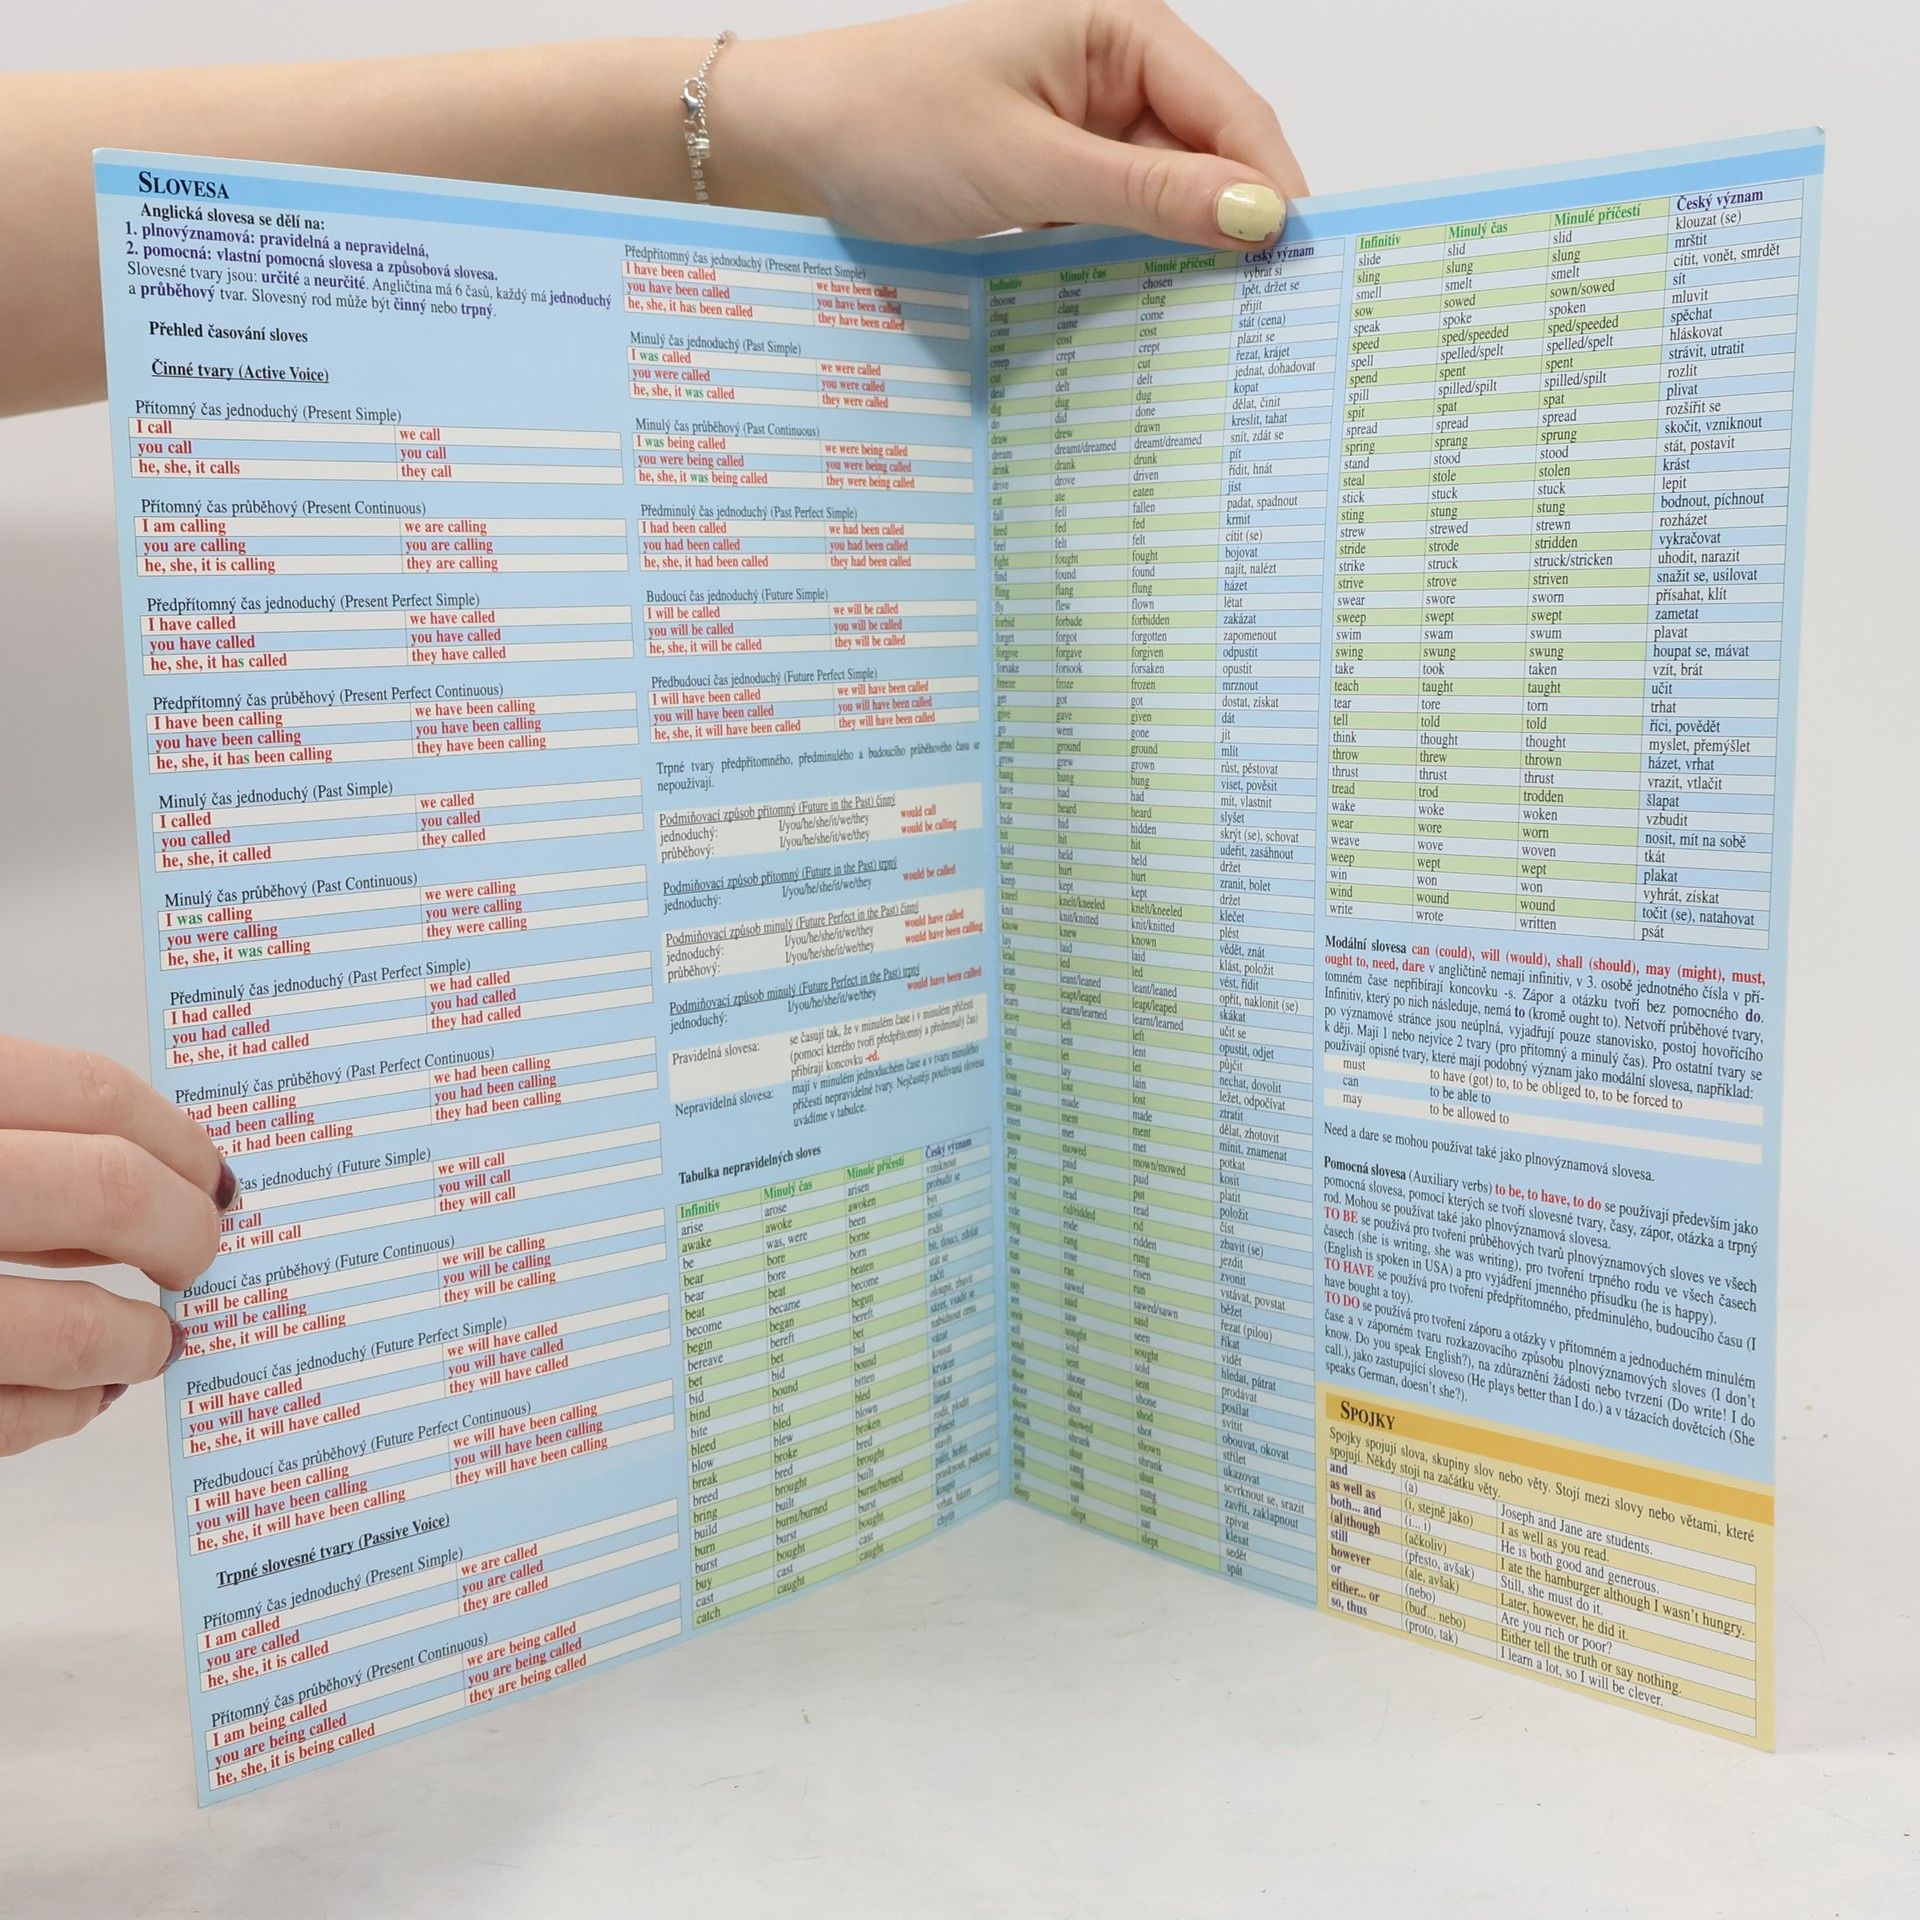 SLOVESA
Anglická slovesa se dělí na:
1. plnovýznamová: pravidelná a nepravidelná,
2. pomocná: vlastní pomocná slovesa a způsobová slovesa.
Slovesné tvary jsou: určité a neurčité. Angličtina má 6 časů, každý má jednoduchý
a průběhový tvar. Slovesný rod může být činný nebo trpný.
Přehled časování sloves
Činné tvary (Active Voice)
Přítomný čas jednoduchý (Present Simple)
I call we call
you call you call
he, she, it calls they call
Přítomný čas průběhový (Present Continuous)
I am calling we are calling
you are calling you are calling
he, she, it is calling they are calling
Předpřítomný čas jednoduchý (Present Perfect Simple)
I have called we have called
you have called you have called
he, she, it has called they have called
Předpřítomný čas průběhový (Present Perfect Continuous)
I have been calling we have been calling
you have been calling you have been calling
he, she, it has been calling they have been calling
Minulý čas jednoduchý (Past Simple)
I called we called
you called you called
he, she, it called they called
Minulý čas průběhový (Past Continuous)
I was calling we were calling
you were calling you were calling
he, she, it was calling they were calling
Předminulý čas jednoduchý (Past Perfect Simple)
I had called we had called
you had called you had called
he, she, it had called they had called
Předminulý čas průběhový (Past Perfect Continuous)
had been calling we had been calling
had been calling you had been calling
it had been calling they had been calling
čas jednoduchý (Future Simple)
we will call
call you will call
it will call they will call
Budoucí čas průběhový (Future Continuous)
I will be calling we will be calling
you will be calling you will be calling
he, she, it will be calling they will be calling
Předbudoucí čas jednoduchý (Future Perfect Simple)
I will have called we will have called
you will have called you will have called
he, she, it will have called they will have called
Předbudoucí čas průběhový (Future Perfect Continuous)
I will have been calling we will have been calling
you will have been calling you will have been calling
he, she, it will have been calling they will have been calling
Trpné slovesné tvary (Passive Voice)
Přítomný čas jednoduchý (Present Simple)
I am called we are called
you are called you are called
he, she, it is called they are called
Přítomný čas průběhový (Present Continuous)
I am being called we are being called
you are being called you are being called
he, she, it is being called they are being called
Předpřítomný čas jednoduchý (Present Perfect Simple)
I have been called we have been called
you have been called you have been called
he, she, it has been called they have been called
Minulý čas jednoduchý (Past Simple)
I was called we were called
you were called you were called
he, she, it was called they were called
Minulý čas průběhový (Past Continuous)
I was being called we were being called
you were being called you were being called
he, she, it was being called they were being called
Předminulý čas jednoduchý (Past Perfect Simple)
I had been called we had been called
you had been called you had been called
he, she, it had been called they had been called
Budoucí čas jednoduchý (Future Simple)
I will be called we will be called
you will be called you will be called
he, she, it will be called they will be called
Předbudoucí čas jednoduchý (Future Perfect Simple)
I will have been called we will have been called
you will have been called you will have been called
he, she, it will have been called they will have been called
Trpné tvary předpřítomného, předminulého a budoucího průběhového času se
nepoužívají.
Podmiňovací způsob přítomný (Future in the Past) činný
jednoduchý: I/you/he/she/it/we/they would call
průběhový: I/you/he/she/it/we/they would be calling
Podmiňovací způsob přítomný (Future in the Past) trpný
jednoduchý: I/you/he/she/it/we/they would be called
Podmiňovací způsob minulý (Future Perfect in the Past) činný
jednoduchý: I/you/he/she/it/we/they would have called
průběhový: I/you/he/she/it/we/they would have been calling
Podmiňovací způsob minulý (Future Perfect in the Past) trpný
jednoduchý: I/you/he/she/it/we/they would have been called
Pravidelná slovesa: se časují tak, že v minulém čase i v minulém příčestí
(pomocí kterého tvoří předpřítomný a předminulý čas)
přibírají koncovku -ed.
Nepravidelná slovesa: mají v minulém jednoduchém čase a v tvaru minulého
příčestí nepravidelné tvary. Nejčastěji používaná slovesa
uvádíme v tabulce.
Tabulka nepravidelných sloves
Infinitiv Minulý čas Minulé příčestí Český význam
arise arose arisen vzniknout
awake awoke awoken probudit se
be was, were been být
bear bore borne nosit
bear bore born rodit
beat beat beaten bít, tlouci, zdolat
become became become stát se
begin began begun začít
bereave bereft bereft
bet bet bet
bid bid bid
bind bound bound vázat
bite bit bitten kousat
bleed bled bled krvácet
blow blew blown foukat
break broke broken lámat
breed bred bred
bring brought brought přinést
build built built stavět
burn burnt/burned burnt/burned
burst burst burst
buy bought bought koupit
cast cast cast vrhat, házet
catch caught caught chytit
Infinitiv Minulý čas Minulé příčestí Český význam
choose chose chosen vybrat si
cling clung clung lpět, držet se
come came come přijít
cost cost cost stát (cena)
creep crept crept plazit se
cut cut cut řezat, krájet
deal delt delt jednat, dohadovat
dig dug dug kopat
do did done dělat, činit
draw drew drawn kreslit, tahat
dream dreamt/dreamed dreamt/dreamed snít, zdát se
drink drank drunk pít
drive drove driven řídit, hnát
eat ate eaten jíst
fall fell fallen padat, spadnout
feed fed fed krmit
feel felt felt cítit (se)
fight fought fought bojovat
find found found najít, nalézt
fling flang flung házet
fly flew flown létat
forbid forbade forbidden zakázat
forget forgot forgotten zapomenout
forgive forgave forgiven odpustit
forsake forsook forsaken opustit
freeze froze frozen mrznout
get got got dostat, získat
give gave given dát
go went gone jít
grind ground ground mlít
grow grew grown růst, pěstovat
hang hung hung viset, pověsit
have had had mít, vlastnit
hear heard heard slyšet
hide hid hidden skrýt (se), schovat
hit hit hit udeřit, zasáhnout
hold held held držet
hurt hurt hurt zranit, bolet
keep kept kept držet
kneel knelt/kneeled knelt/kneeled klečet
knit knit/knitted knit/knitted plést
know knew known vědět, znát
lay laid laid klást, položit
lead led led vést, řídit
lean leant/leaned leant/leaned opřít, naklonit (se)
leap leapt/leaped leapt/leaped skákat
learn learnt/learned learnt/learned učit se
leave left left opustit, odjet
lend lent lent půjčit
let let let nechat, dovolit
lie lay lain ležet, odpočívat
lose lost lost ztratit
make made made dělat, zhotovit
mean ment ment mínit, znamenat
meet met met potkat
mow mowed mown/mowed kosit
pay paid paid platit
put put put položit
read read read číst
rid rid/ridded rid zbavit (se)
ride rode ridden jezdit
ring rang rung zvonit
rise rose risen vstávat, povstat
run ran run běžet
saw sawed sawed/sawn řezat (pilou)
say said said říkat
see saw seen vidět
sought sought hledat, pátrat
sell sold sold prodávat
send sent sent posílat
shine shone shone svítit
shod shod obouvat, okovat
shoot shot shot střílet
show showed shown ukazovat
shrank shrunk scvrknout se, srazit
shut shut shut zavřít, zaklapnout
sing sang sung zpívat
sink sank sunk klesat
sit sat sat sedět
sleep slept slept spát
Infinitiv Minulý čas Minulé příčestí Český význam
slide slid slid klouzat (se)
sling slung slung mrštit
smell smelt smelt cítit, vonět, smrdět
sow sowed sown/sowed sít
speak spoke spoken mluvit
speed sped/speeded sped/speeded spěchat
spell spelled/spelt spelled/spelt hláskovat
spend spent spent strávit, utratit
spill spilled/spilt spilled/spilt rozlít
spit spat spat plivat
spread spread spread rozšířit se
spring sprang sprung skočit, vzniknout
stand stood stood stát, postavit
steal stole stolen krást
stick stuck stuck lepit
sting stung stung bodnout, píchnout
strew strewed strewn rozházet
stride strode stridden vykračovat
strike struck struck/stricken uhodit, narazit
strive strove striven snažit se, usilovat
swear swore sworn přísahat, klít
sweep swept swept zametat
swim swam swum plavat
swing swung swung houpat se, mávat
take took taken vzít, brát
teach taught taught učit
tear tore torn trhat
tell told told říci, povědět
think thought thought myslet, přemýšlet
throw threw thrown házet, vrhat
thrust thrust thrust vrazit, vtlačit
tread trod trodden šlapat
wake woke woken vzbudit
wear wore worn nosit, mít na sobě
weave wove woven tkát
weep wept wept plakat
win won won vyhrát, získat
wind wound wound točit (se), natahovat
write wrote written psát
Modální slovesa can (could), will (would), shall (should), may (might), must,
ought to, need, dare v angličtině nemají infinitiv, v 3. osobě jednotného čísla v pří-
tomném čase nepřibírají koncovku -s. Zápor a otázku tvoří bez pomocného do.
Infinitiv, který po nich následuje, nemá to (kromě ought to). Netvoří průběhové tvary,
po významové stránce jsou neúplná, vyjadřují pouze stanovisko, postoj hovořícího
k ději. Mají 1 nebo nejvíce 2 tvary (pro přítomný a minulý čas). Pro ostatní tvary se
používají opisné tvary, které mají podobný význam jako modální slovesa, například:
must to have (got) to, to be obliged to, to be forced to
can to be able to
may to be allowed to
Need a dare se mohou používat také jako plnovýznamová slovesa.
Pomocná slovesa (Auxiliary verbs) to be, to have, to do se používají především jako
pomocná slovesa, pomocí kterých se tvoří slovesné tvary, časy, zápor, otázka a trpný
rod. Mohou se používat také jako plnovýznamová slovesa.
TO BE se používá pro tvoření průběhových tvarů plnovýznamových sloves ve všech
časech (she is writing, she was writing), pro tvoření trpného rodu ve všech časech
(English is spoken in USA) a pro vyjádření jmenného přísudku (he is happy).
TO HAVE se používá pro tvoření předpřítomného, předminulého, budoucího času (I
have bought a toy).
TO DO se používá pro tvoření záporu a otázky v přítomném a jednoduchém minulém
čase a v záporném tvaru rozkazovacího způsobu plnovýznamových sloves (I don't
know. Do you speak English?), na zdůraznění žádosti nebo tvrzení (Do write! I do
call.), jako zastupující sloveso (He plays better than I do.) a v tázacích dovětcích (She
speaks German, doesn't she?).
SPOJKY
Spojky spojují slova, skupiny slov nebo věty. Stojí mezi slovy nebo větami, které
spojují. Někdy stojí na začátku věty.
and (a) Joseph and Jane are students.
as well as (i, stejně jako) I as well as you read.
both... and (i... i) He is both good and generous.
(al)though (ačkoliv) I ate the hamburger although I wasn't hungry.
still (přesto, avšak) Still, she must do it.
however (ale, avšak) Later, however, he did it.
or (nebo) Are you rich or poor?
either... or (buď... nebo) Either tell the truth or say nothing.
so, thus (proto, tak) I learn a lot, so I will be clever.